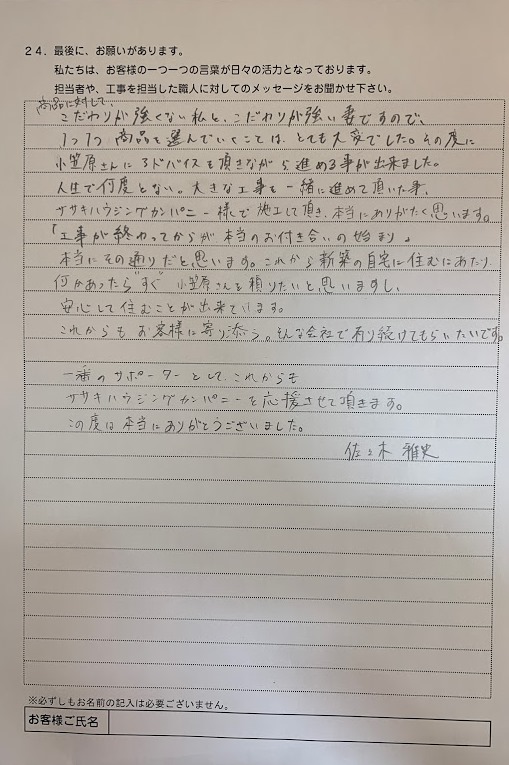 24．最後に、お願いがあります。
私たちは、お客様の一つ一つの言葉が日々の活力となっております。
担当者や、工事を担当した職人に対してのメッセージをお聞かせ下さい。
商品に対して、
こだわりが強くない私と、こだわりが強い妻ですので、
1つ1つ商品を選んでいくことは、とても大変でした。その度に
小笠原さんにアドバイスを頂きながら、進める事が出来ました。
人生で何度とない。大きな工事を一緒に進めて頂いた事、
ササキハウジングカンパニー様で施工して頂き、本当にありがたく思います。
「工事が終わってからが本当のお付き合いの始まり」
本当にその通りだと思います。これから新築の自宅に住むにあたり
何かあったら"すぐ"小笠原さんを頼りたいと思いますし、
安心して住むことが出来ています。
これからもお客様に寄り添う。そんな会社で有り続けてもらいたいです。
一番のサポーターとして、これからも
ササキハウジングカンパニーを応援させて頂きます。
この度は本当にありがとうございました。
佐々木 雅史
※必ずしもお名前の記入は必要ございません。
お客様ご氏名